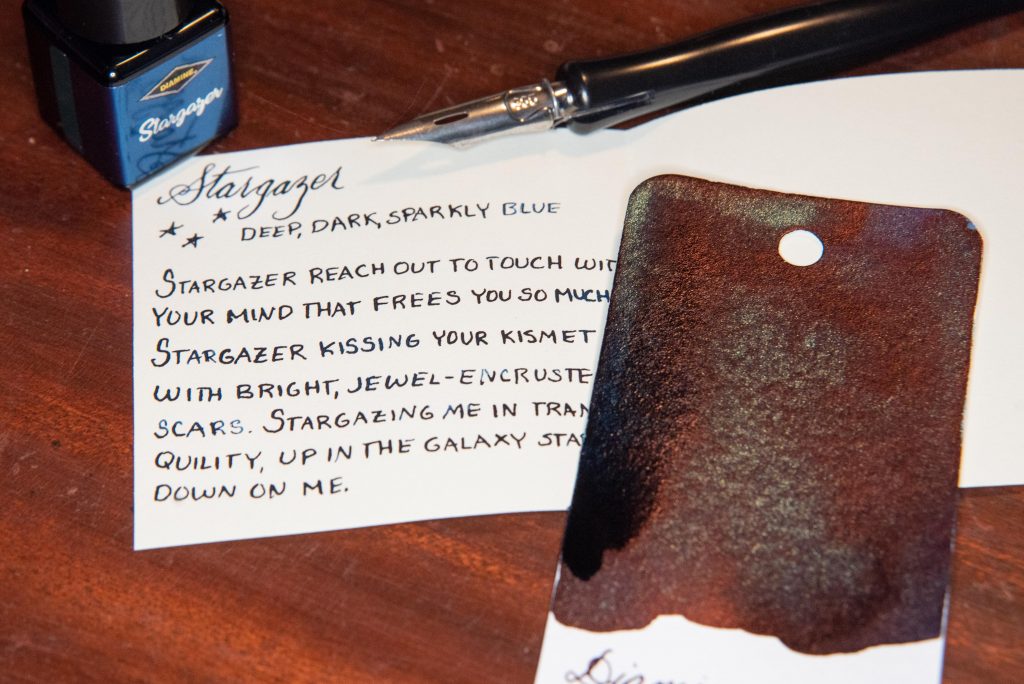 DIAMINE
Stargazer
Stargazer
DEEP, DARK, SPARKLY BLUE
STARGAZER REACH OUT TO TOUCH WIT
YOUR MIND THAT FREES YOU SO MUCH
STARGAZER KISSING YOUR KISMET
WITH BRIGHT, JEWEL-ENCRUSTE
SCARS. STARGAZING ME IN TRAN
QUILITY, UP IN THE GALAXY STA
DOWN ON ME.